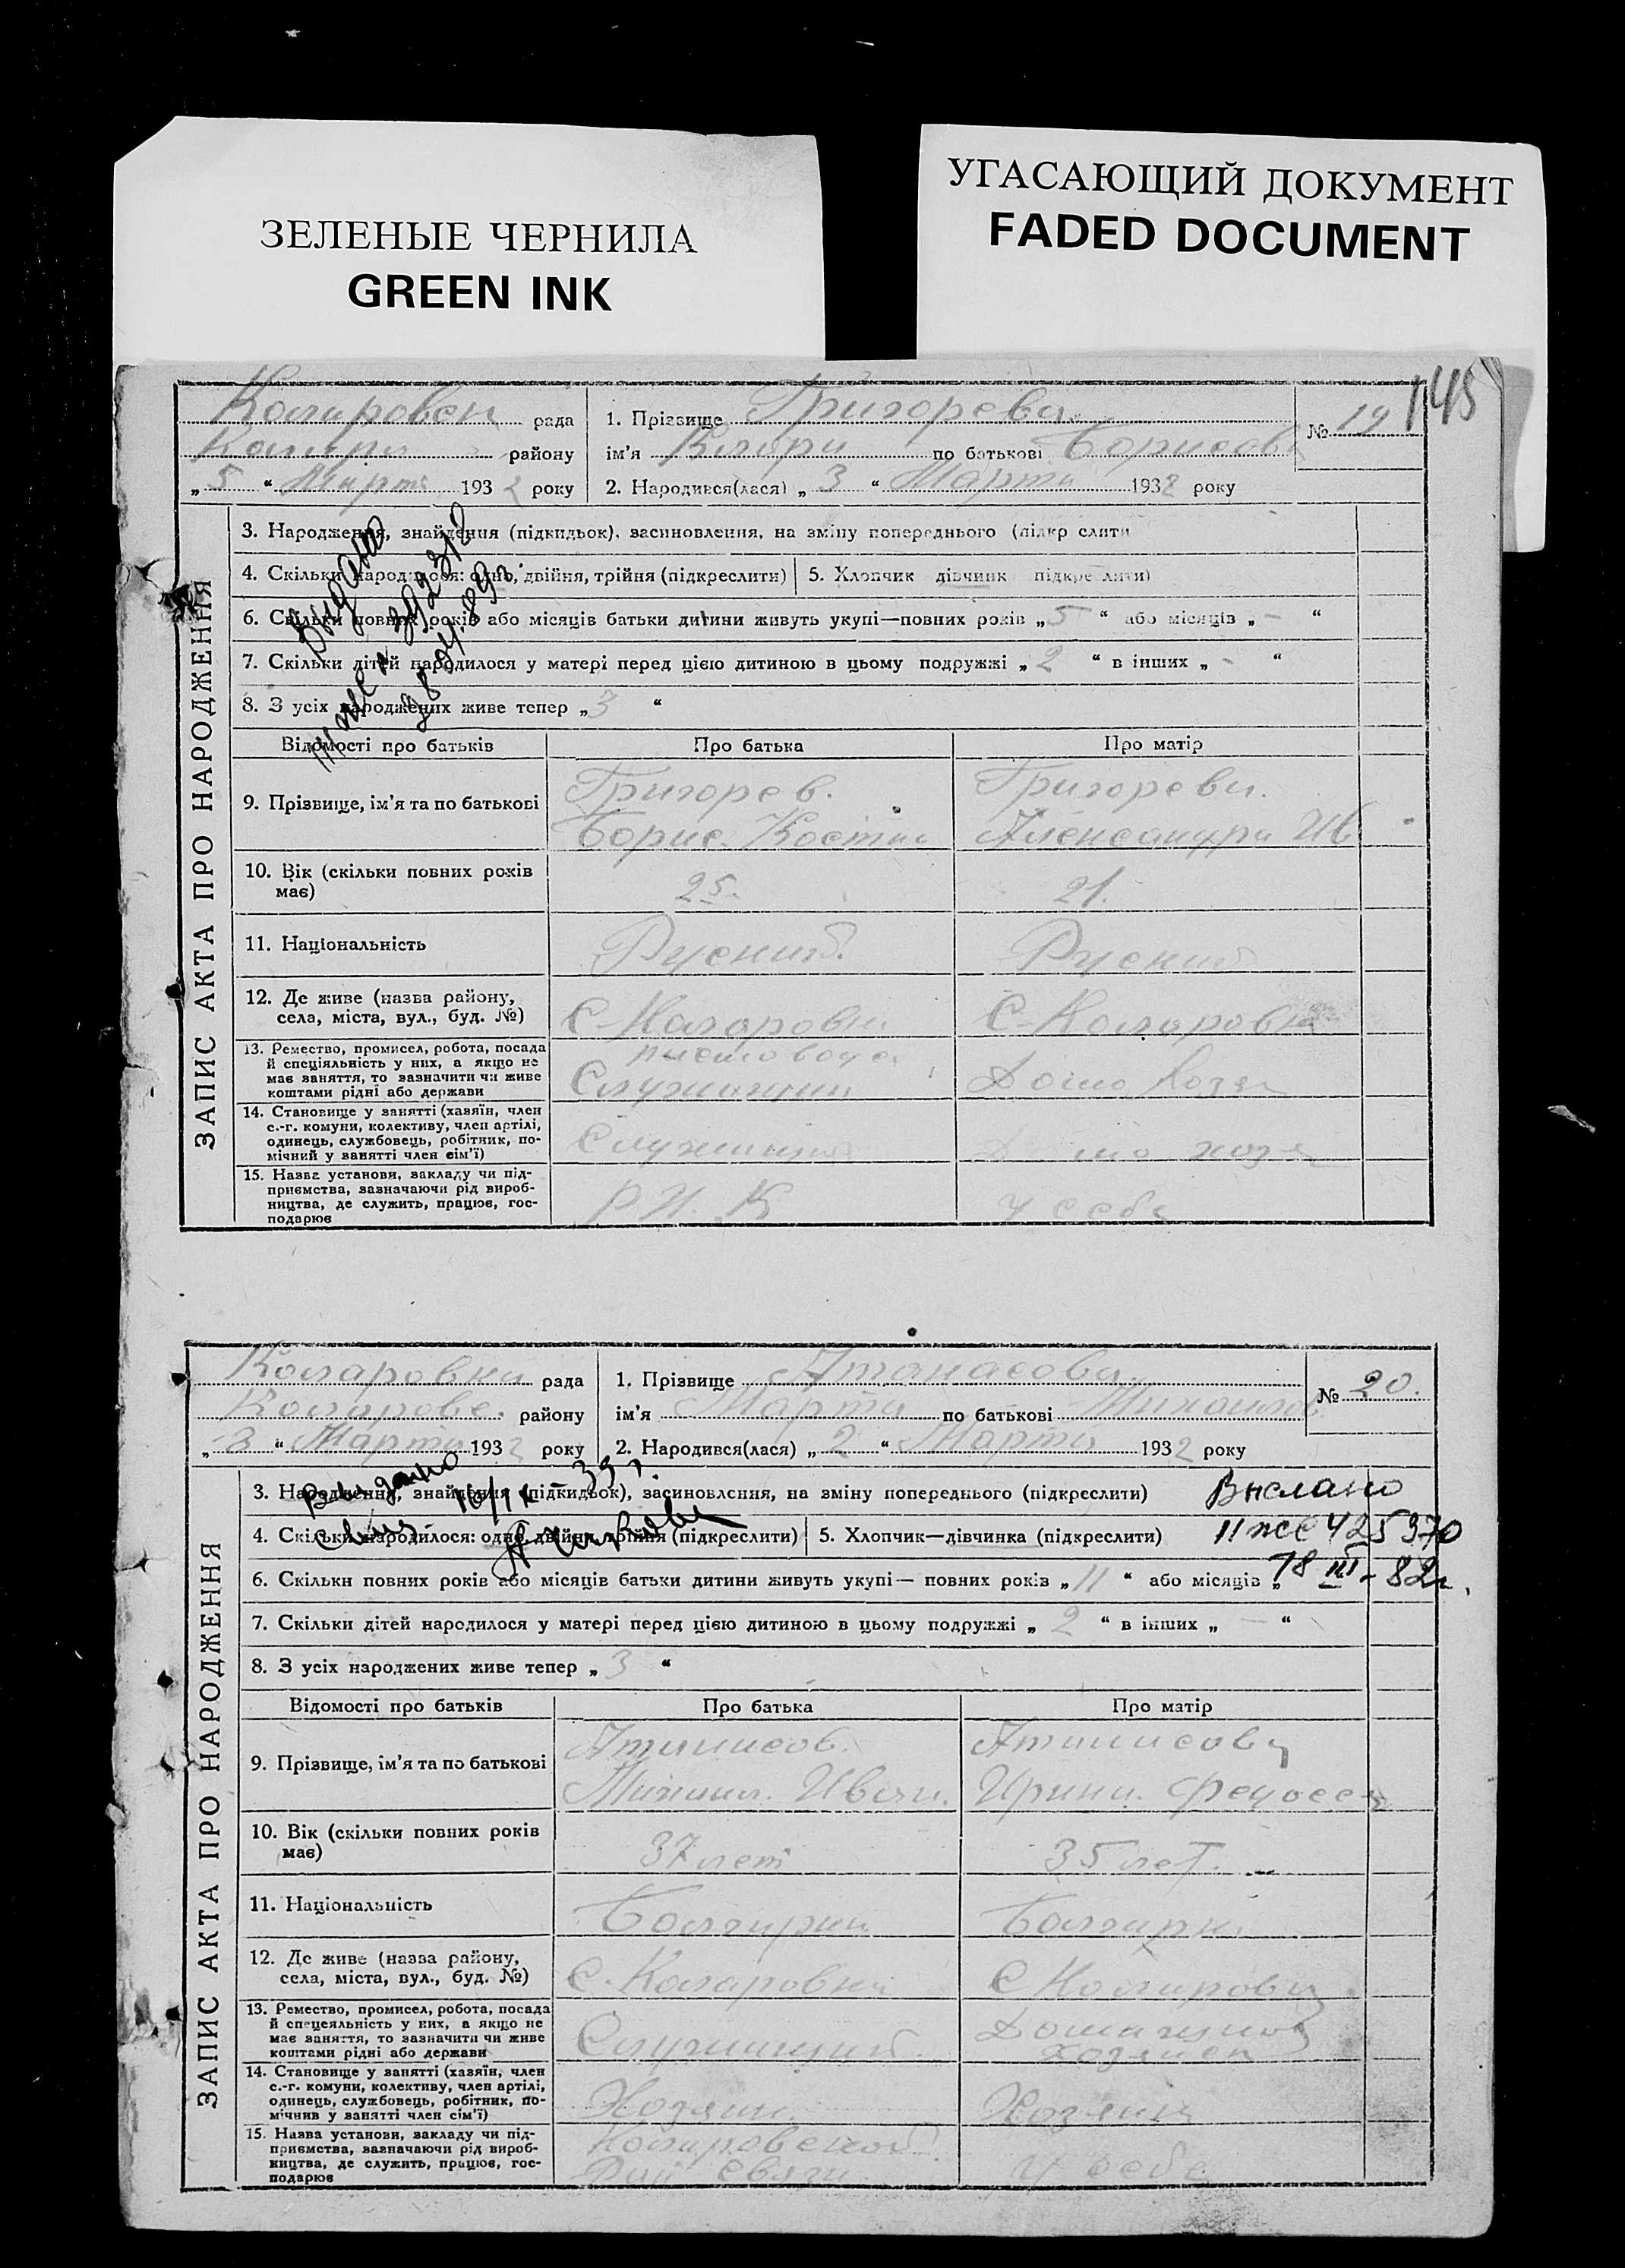 ЗЕЛЕНЫЕ ЧЕРНИЛА
GREEN INK
УГАСАЮЩИЙ ДОКУМЕНТ
FADED DOCUMENT
145
рада
району
„ 5 “ Марта 1932 року
1. Прізвище Григорева
№ 19
ім'я по батькові
2. Народився(лася) „ 3 “ Марта 1932 року
ЗАПИС АКТА ПРО НАРОДЖЕННЯ
3. Народження, знайдення (підкидьок), засиновлення, на зміну попереднього
4. Скільки народилося: одно, двійня, трійня (підкреслити)
5. Хлопчик дівчинк
6. Скільки повних років або місяців батьки дитини живуть укупі—повних років „ 5 “ або місяців „ - “
7. Скільки дітей народилося у матері перед цією дитиною в цьому подружжі „ 2 “ в інших „ - “
8. З усіх народжених живе тепер „ 3 “
Видано
Відомості про батьків
Про батька
Про матір
9. Прізвище, ім'я та по батькові
Григорев.
Борис Костин
Григорева.
Александра Ив
10. Вік (скільки повних років
має)
25.
21.
11. Національність
Руский.
Руский
12. Де живе (назва району,
села, міста, вул., буд. №)
С. Коларовка
С. Коларовка
13. Ремество, промисел, робота, посада
й спеціяльність у них, а якщо не
має заняття, то зазначити чи живе
коштами рідні або держави
Служащий
Домо хозя
14. Становище у занятті (хазяїн, член
с.-г. комуни, колективу, член артілі,
одинець, службовець, робітник, по-
мічний у занятті член сім'ї)
Служащий
хозя
15. Назва установи, закладу чи під-
приємства, зазначаючи рід вироб-
ництва, де служить, працює, гос-
подарює
Р И. К
у себя
Коларовка рада
Коларовс. району
„ 3 “ Марта 1932 року
1. Прізвище Атанасова.
№ 20.
ім'я Марта по батькові Михаилов
2. Народився(лася) „ 2 “ Марта 1932 року
ЗАПИС АКТА ПРО НАРОДЖЕННЯ
3. Народження, знайдення (підкидьок), засиновлення, на зміну попереднього (підкреслити)
Выслано
4. Скільки народилося: одно, двійня, трійня (підкреслити)
5. Хлопчик—дівчинка (підкреслити)
II жс 425970
18 III - 82г.
6. Скільки повних років або місяців батьки дитини живуть укупі — повних років „ 11 “ або місяців „
7. Скільки дітей народилося у матері перед цією дитиною в цьому подружжі „ 2 “ в інших „ — “
8. З усіх народжених живе тепер „ 3 “
Відомості про батьків
Про батька
Про матір
9. Прізвище, ім'я та по батькові
Атанасов.
Михаил. Иван.
Атанасова
Ирина. Федосее
10. Вік (скільки повних років
має)
37 лет
35 лет.
11. Національність
Болгарин
Болгарк
12. Де живе (назва району,
села, міста, вул., буд. №)
С. Коларовка
С Коларовка
13. Ремество, промисел, робота, посада
й спецеяльність у них, а якщо не
має заняття, то зазначити чи живе
коштами рідні або держави
Служащий.
14. Становище у занятті (хазяїн, член
с.-г. комуни, колективу, член артілі,
одинець, службовець, робітник, по-
мічнив у занятті член сім'ї)
Хозяин
15. Назва установи, закладу чи під-
приємства, зазначаючи рід вироб-
ництва, де служить, працює, гос-
подарює
Коларовской
Рай связи.
У себе